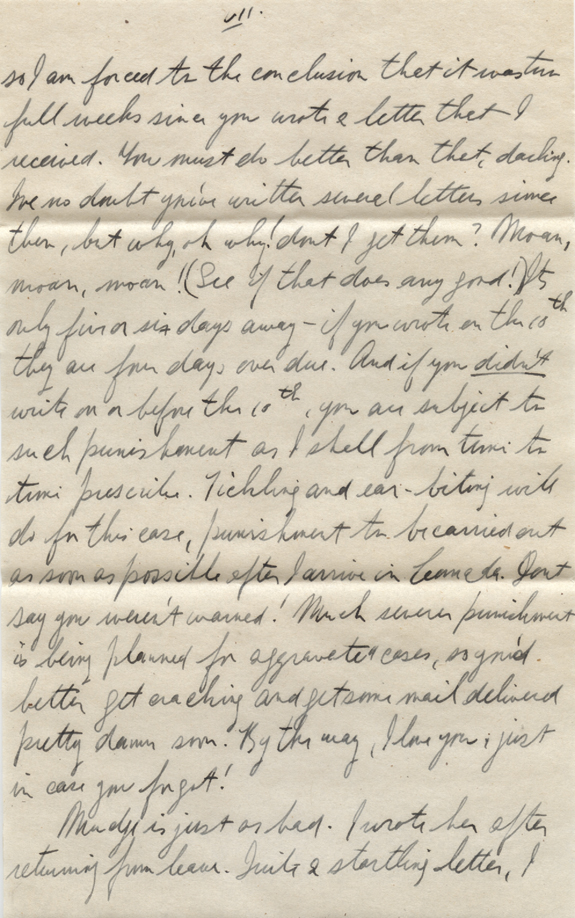 vii.
so I am forced to the conclusion that it was two
full weeks since you wrote a letter that I
received. You must do better than that, darling.
I've no doubt you've written several letters since
then, but why, oh why! don't I get them? Moan,
moan, moan! (See if that does any good!) It's
only five or six days away - if you wrote on the 10th
they are four days over due. And if you didn't
write on or before the 10th, you are subject to
such punishment as I shall from time to
time prescribe. Tickling and ear-biting will
do for this case, punishment to be carried out
as soon as possible after I arrive in Canada. Don't
say you weren't warned! Much severer punishment
is being planned for aggravated cases, so you'd
better get cracking and get some mail delivered
pretty damn soon. By the way, I love you; just
in case you forgot!
Mudge is just as bad. I wrote her after
returning from leave. Quite a startling letter, I